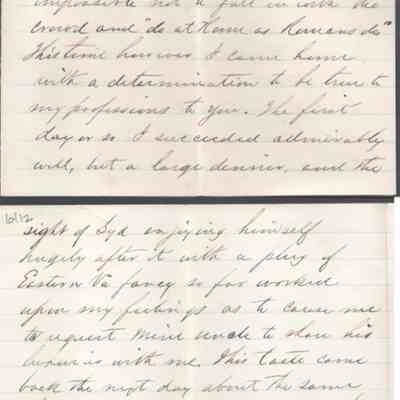 impossible not to fall in with the
crowd and "do at Rome as Romans do"
This time however I came home
with a determination to be true to
my professions to you. The first
day or so I succeeded admirably
well, but a large dinner, and the
6/12
sight of Syd enjoying himself
hugely after it with a plug of
Eastern Va fancy so far worked
upon my feelings as to cause me
to request mine uncle to share his
luxuries with me. This taste came
back the next day about the same